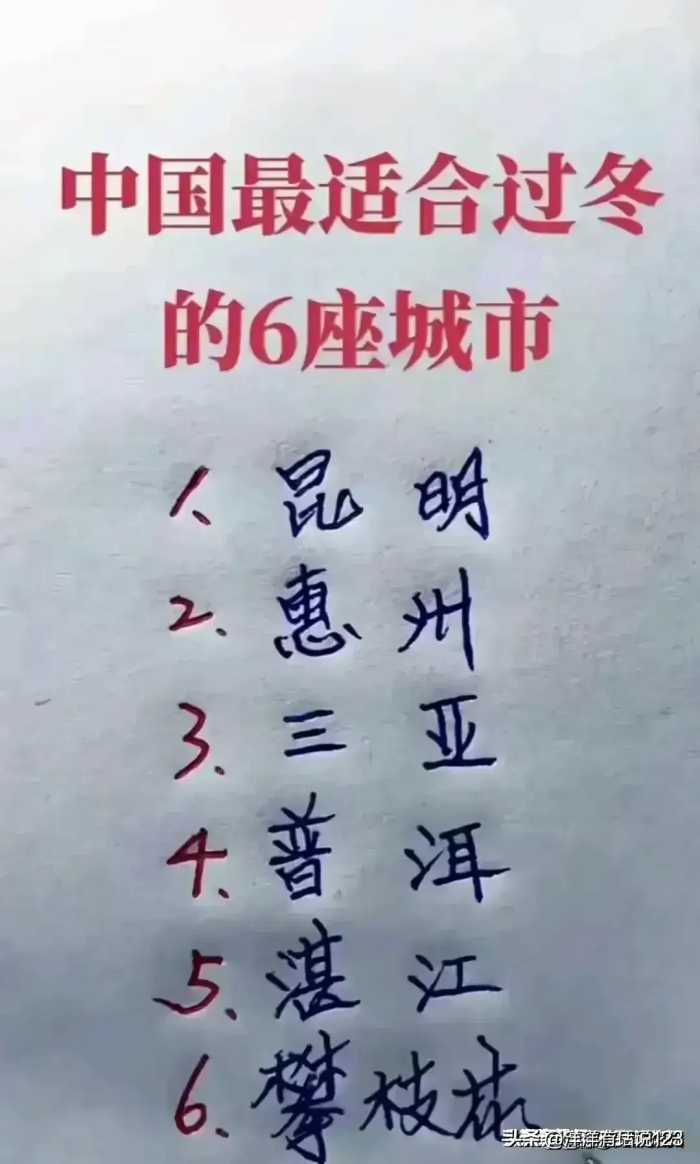 中国最适合过冬
的6座城市
1、昆明
2、惠州
3、三亚
4、普洱
5、湛江
6、攀枝花